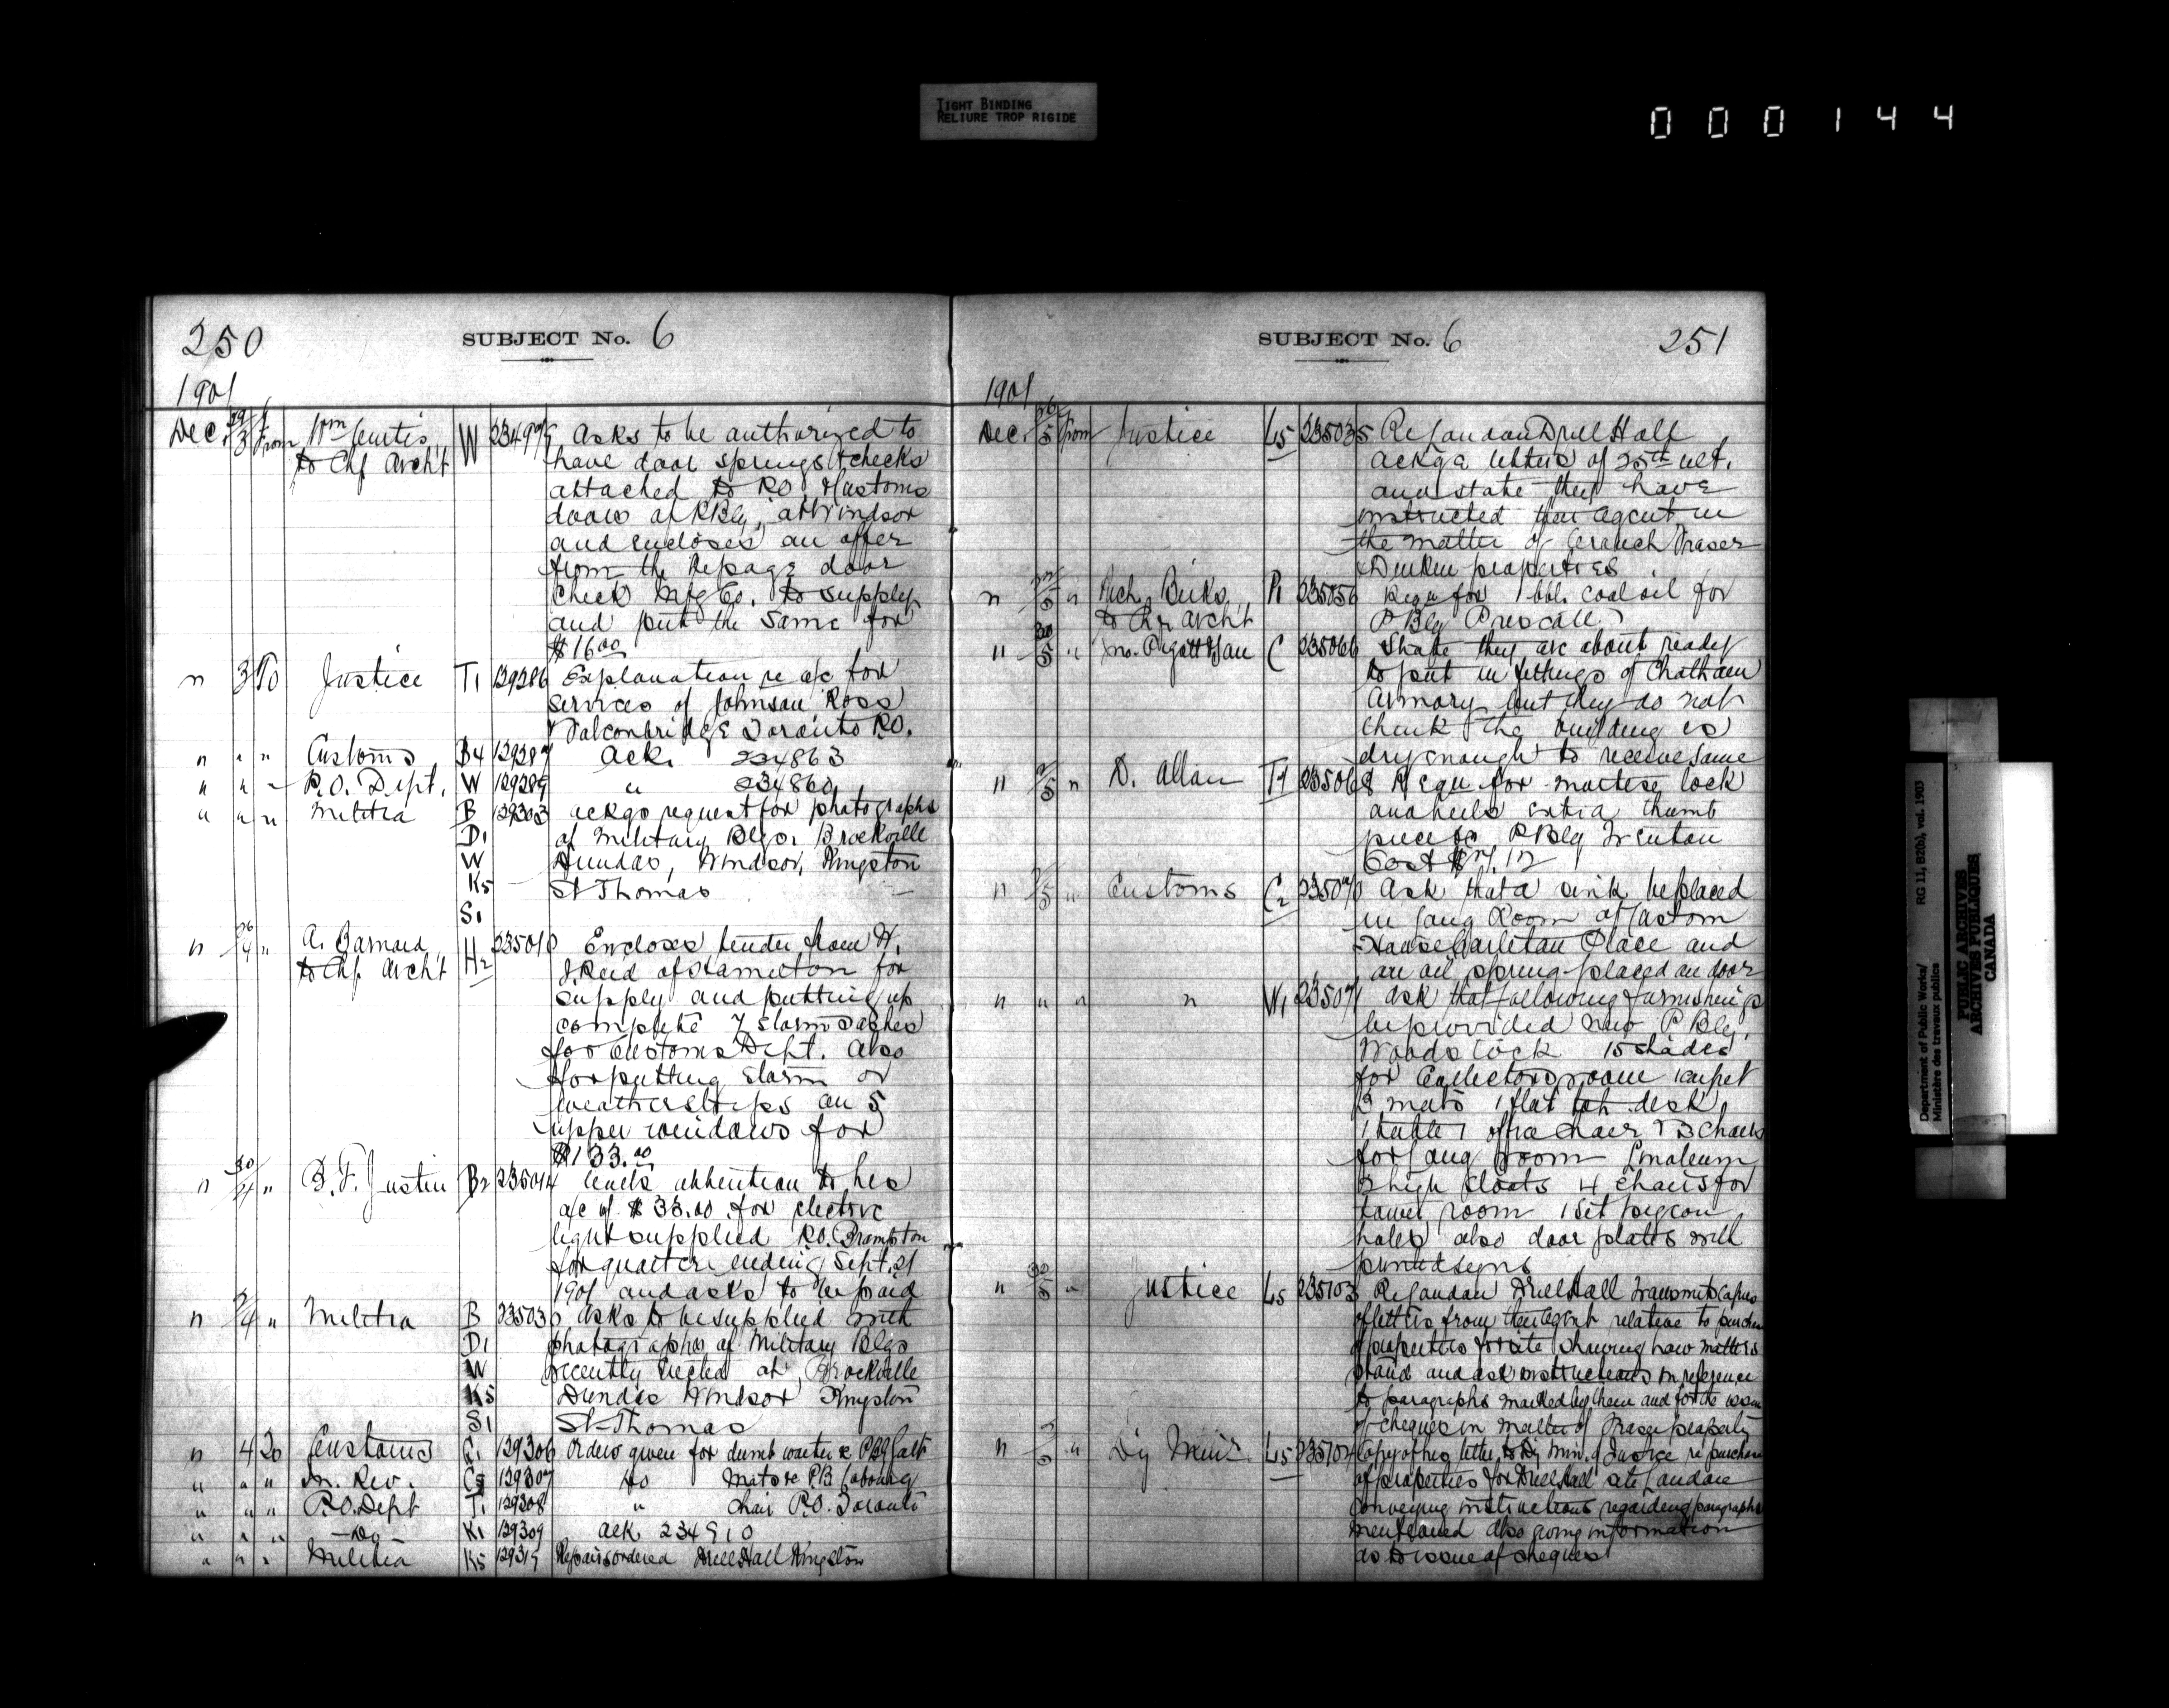 TIGHT BINDING
RELIURE TROP RIGIDE
000144
250 SUBJECT No. 6
1901
Dec. 29/3 From Wm Curtis W 234979 Asks to be authorized to
to Chf Archt have door springs & checks
attached to P.O. & Customs
doors of P Blg. at Windsor
and encloses an offer
from the Repage door
check Mfg Co. to supply
and put the same for
$16 00
" 3 To Justice T1 129286 Explanation re a/c for
services of Johnson Ross
& Falconbridge Toronto P.O.
" " " Customs B4 129287 Ack. 234863
" " " P.O. Dept. W 129289 " 234860
" " " Militia B 129303 ackgs request for photographs
D1 of Military Blgs. Brockville
W Dundas, Windsor, Kingston
K5 St Thomas
S1
" 26/4 " A. Barnard H2 235010 Encloses tender from W.
to Chf. Archt J. Reid of Hamilton for
supply and putting up
complete 7 storm sashes
for Customs Dept. Also
for putting storm or
weatherstrips on 5
upper windows for
$133.00
" 30/4 " B. F. Justin B2 235014 Calls attention to his
a/c of $33.00 for electric
light supplied P.O. Brampton
for quarter ending Sept. 21
1901 and asks to be paid
" 2/4 " Militia B 235030 Asks to be supplied with
D1 photographs of Military Blgs
W recently erected at Brockville
K5 Dundas Windsor Kingston
S1 St Thomas
" 4 To Customs G1 129306 Orders given for dumb waiter & PBlg Galt
" " " In. Rev. C5 129307 do Mats re P.B Cobourg
" " " P.O. Dept T1 129308 " chair P.O. Toronto
" " " —Do— K1 129309 ack 234910
" " " Militia K5 129319 Repairs ordered Drill Hall Kingston
SUBJECT No. 6 251
1901
Dec. 26/5 from Justice L5 235035 Re London Drill Hall
Ackge letters of 25th ult.
and state they have
instructed their agent in
the matter of Fraser
& properties
" /5 " Rich. Birks P1 235056 Requ for 1 bbl. coal oil for
to Chf Archt P Blg Prescott
" 30/5 " Jno. Piggott & Son C 235066 State they are about ready
to put in fittings of Chatham
Armory but they do not
think the building is
dry enough to receive same
" 2/5 " D. Allan T4 235068 Requ for mortise lock
and extra thumb
piece for P Blg Trenton
Cost $
" /5 " Customs C2 235070 Ask that a sink be placed
in Long Room of Custom
House Carleton Place and
an oil spring placed on door
" " " " W1 235071 Ask that following furnishings
be provided new P Blg.
Woodstock 15 shades
for Collectors room carpet
3 mats 1 flat top desk
1 table 1 office chair & 3 chairs
for Long room Linoleum
3 high stools 4 chairs for
tower room 1 set pigeon
holes also door plates with
printed signs
" 30/5 " Justice L5 235103 Re London Drill Hall Transmits copies
of letters from their Agent relative to purchase
of properties for site showing how matters
stand and ask instructions in reference
to paragraphs marked by them and for the issue
of cheques in matter of Fraser property
" /5 " Dy Minr. L5 235104 Copy of his letter to Dy Min. of Justice re purchase
of properties for Drill Hall site London
conveying instructions regarding paragraphs
mentioned also giving information
as to issue of cheques
Department of Public Works/
Ministère des travaux publics
RG 11, B2(b), vol. 1903
PUBLIC ARCHIVES
ARCHIVES PUBLIQUES
CANADA